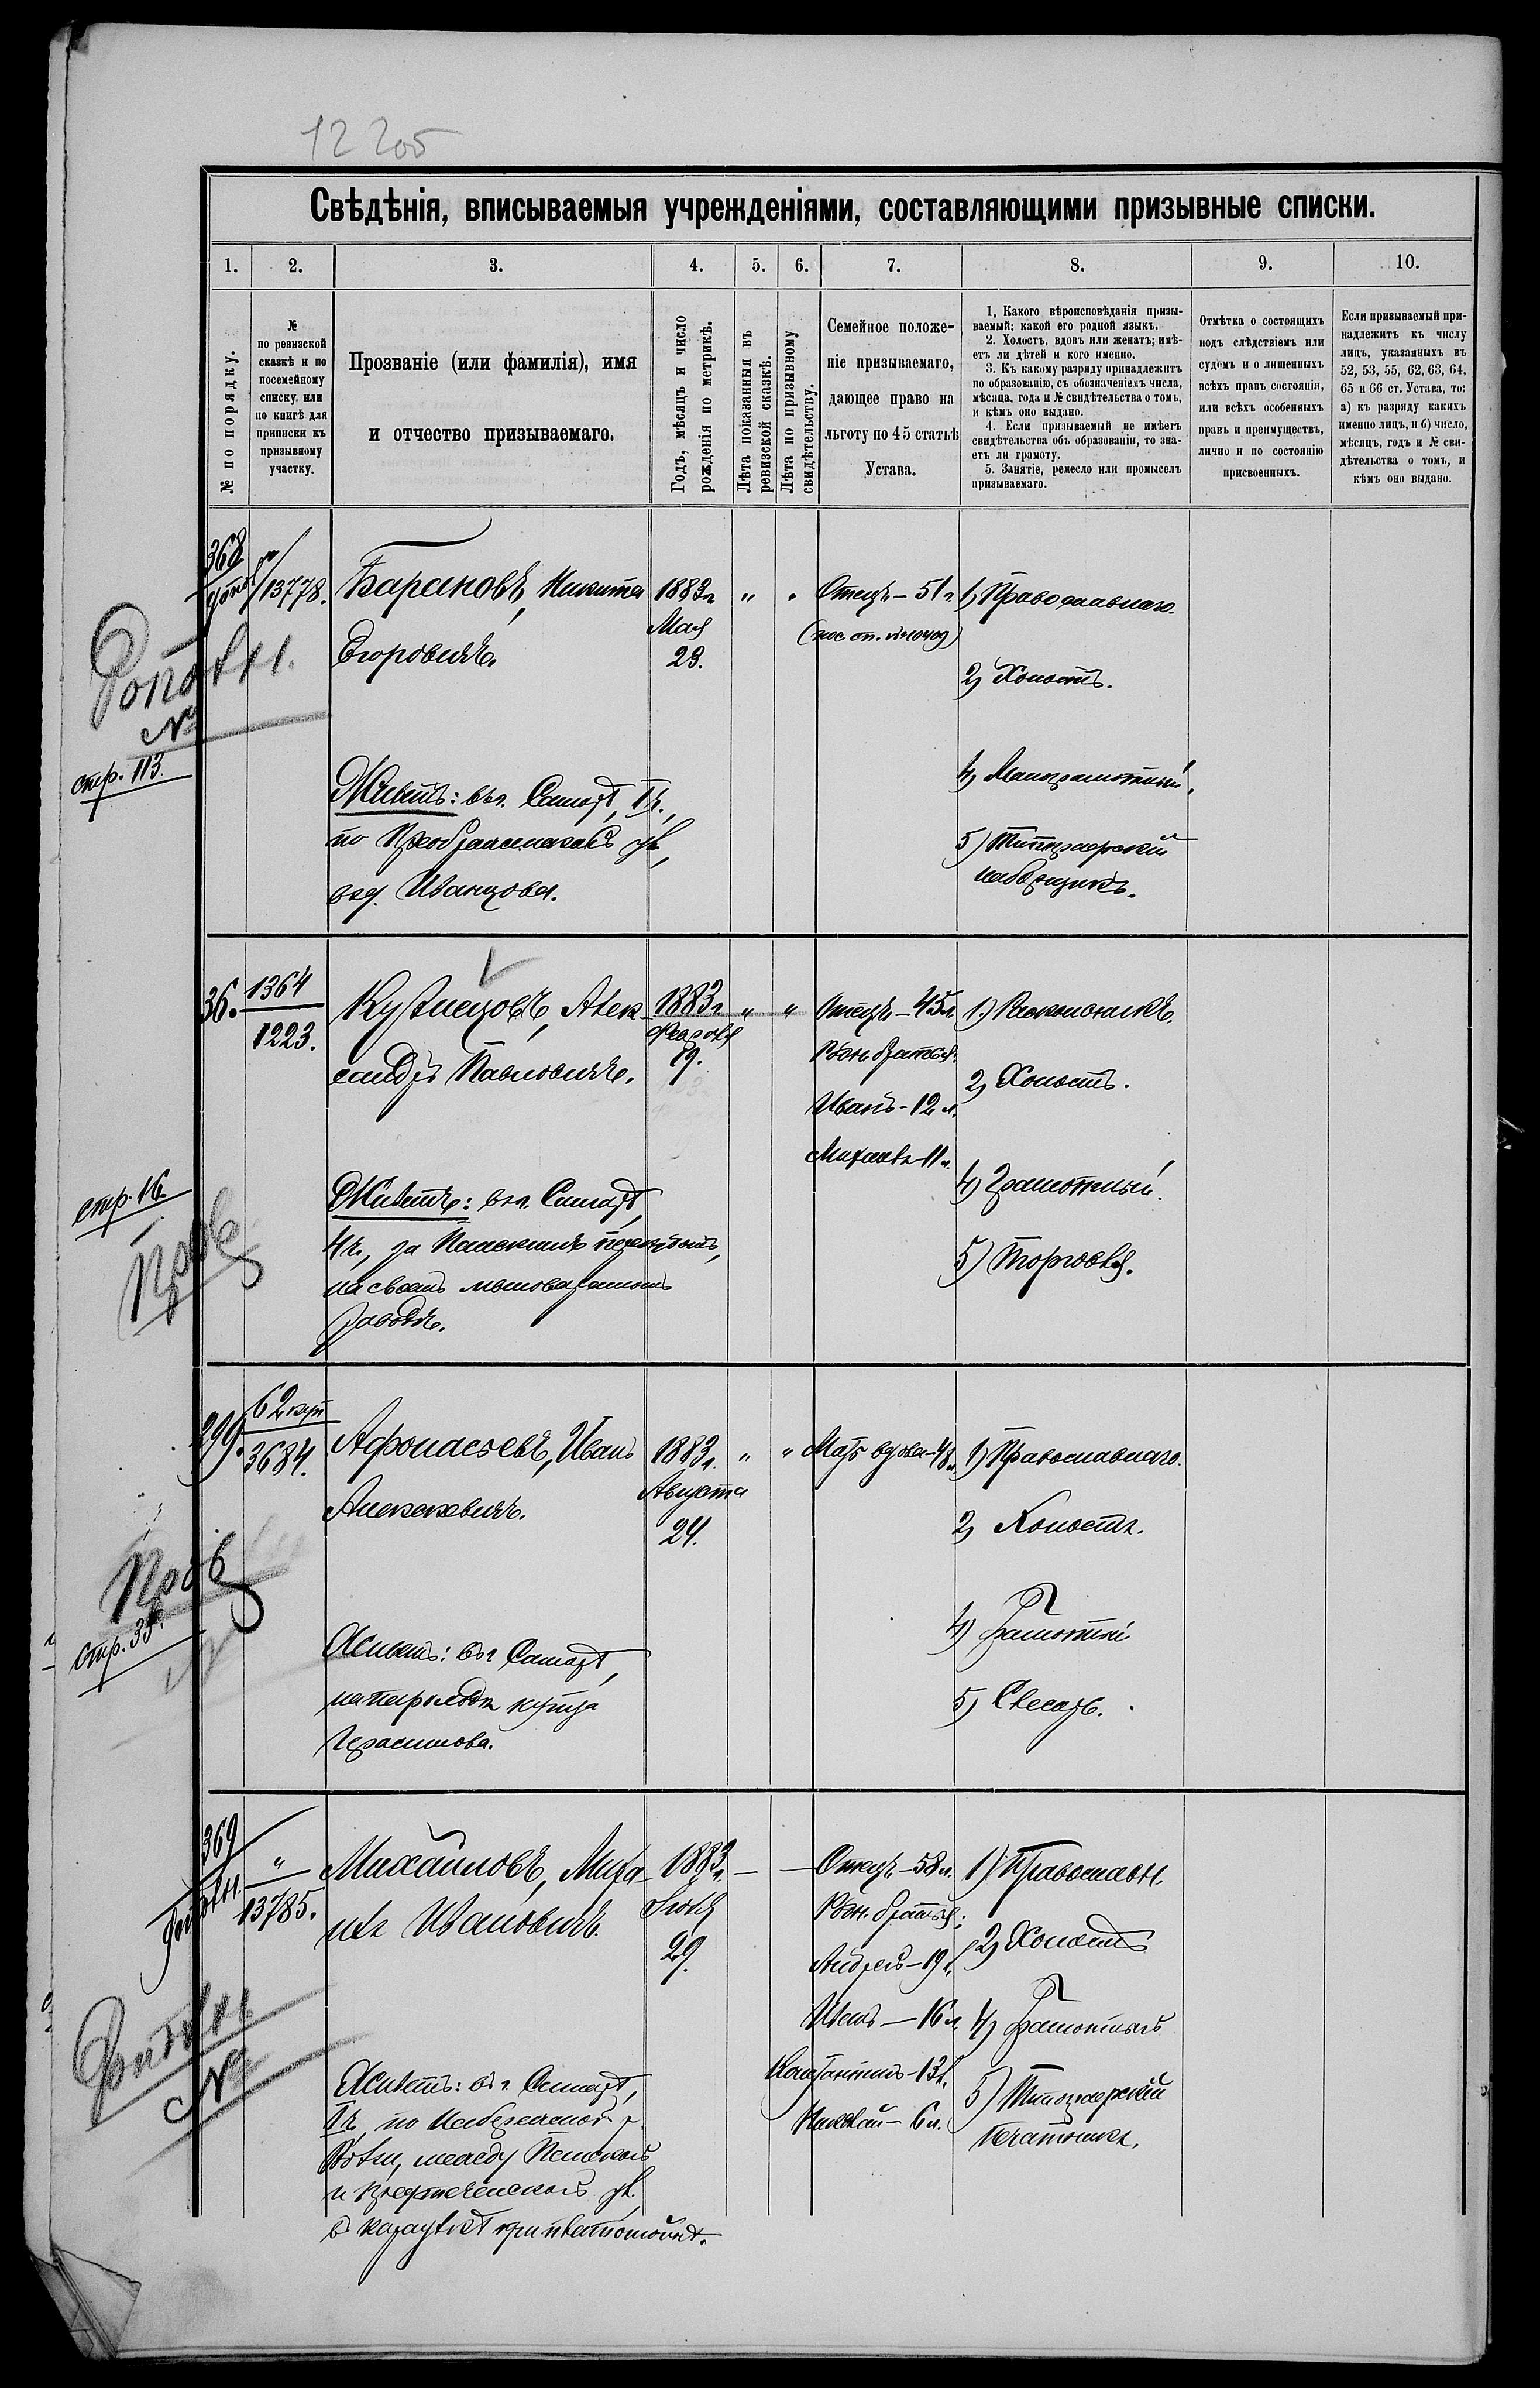 12 205
Свѣдѣнія, вписываемыя учрежденіями, составляющими призывные списки.
1. 2. 3. 4. 5. 6. 7. 8. 9. 10.
№ по порядку.
№
по ревизской
сказкѣ и по
посемейному
списку, или
по книгѣ для
приписки къ
призывному
участку.
Прозваніе (или фамилія), имя
и отчество призываемаго.
Годъ, мѣсяцъ и число
рожденія по метрикѣ.
Лѣта показанныя въ
ревизской сказкѣ.
Лѣта по призывному
свидѣтельству.
Семейное положе-
ніе призываемаго,
дающее право на
льготу по 45 статьѣ
Устава.
1. Какого вѣроисповѣданія призы-
ваемый; какой его родной языкъ.
2. Холостъ, вдовъ или женатъ; имѣ-
етъ ли дѣтей и кого именно.
3. Къ какому разряду принадлежитъ
по образованію, съ обозначеніемъ числа,
мѣсяца, года и № свидѣтельства о томъ,
и кѣмъ оно выдано.
4. Если призываемый не имѣетъ
свидѣтельства объ образованіи, то зна-
етъ ли грамоту.
5. Занятіе, ремесло или промыселъ
призываемаго.
Отмѣтка о состоящихъ
подъ слѣдствіемъ или
судомъ и о лишенныхъ
всѣхъ правъ состоянія,
или всѣхъ особенныхъ
правъ и преимуществъ,
лично и по состоянію
присвоенныхъ.
Если призываемый при-
надлежитъ къ числу
лицъ, указанныхъ въ
52, 53, 55, 62, 63, 64,
65 и 66 ст. Устава, то:
а) къ разряду какихъ
именно лицъ, и б) число,
мѣсяцъ, годъ и № сви-
дѣтельства о томъ, и
кѣмъ оно выдано.
368
допол
13778.
Барановъ, Никита
Егоровичъ.
1883 г.
Мая
23.
" "
Отецъ – 51 г.
1) Православнаго.
2) Холостъ.
4) Малограмотный.
5) Типографскій
наборщикъ.
Дополн.
№
стр. 113.
Живетъ: въ г. Самарѣ, I ч.,
по Преображенской ул.,
въ д. Иванцова.
36.
1364
1223.
Кузнецовъ, Алек-
сандръ Павловичъ.
1883 г.
Февраля
19.
" "
Отецъ – 45 л.
Родн. братья:
Иванъ – 12 л.
Михаилъ – 11 л.
1) Раскольникъ.
2) Холостъ.
4) Грамотный.
5) Торговля.
стр. 16.
Пров
Живетъ: въ г. Самарѣ,
4 ч., за
на своемъ мыловаренномъ
заводѣ.
299.
62 куп
3684.
Афонасьевъ, Иванъ
Алексеевичъ.
1883 г.
Августа
24.
" "
Мать вдова – 48 л.
1) Православнаго.
2) Холостъ.
4) Грамотный
5) Слесарь.
Пров
Стр. 35.
Живетъ: въ г. Самарѣ,
на пароходѣ купца
Герасимова.
369
дополн.
"
13785.
Михайловъ, Миха-
илъ Ивановичъ.
1883 г.
Іюля
29.
— —
Отецъ – 58 л.
Родн. братья:
Андрей – 19 л.
Иванъ – 16 л.
Константинъ – 13 л.
Николай – 6 л.
1) Православн.
2) Холостъ
4) Грамотный
5) Типографскій
печатникъ.
Дополн
№
Живетъ: въ г. Самарѣ,
I ч., по Набережной р.
Волги, между
и Предтеченской ул.
въ караулкѣ при